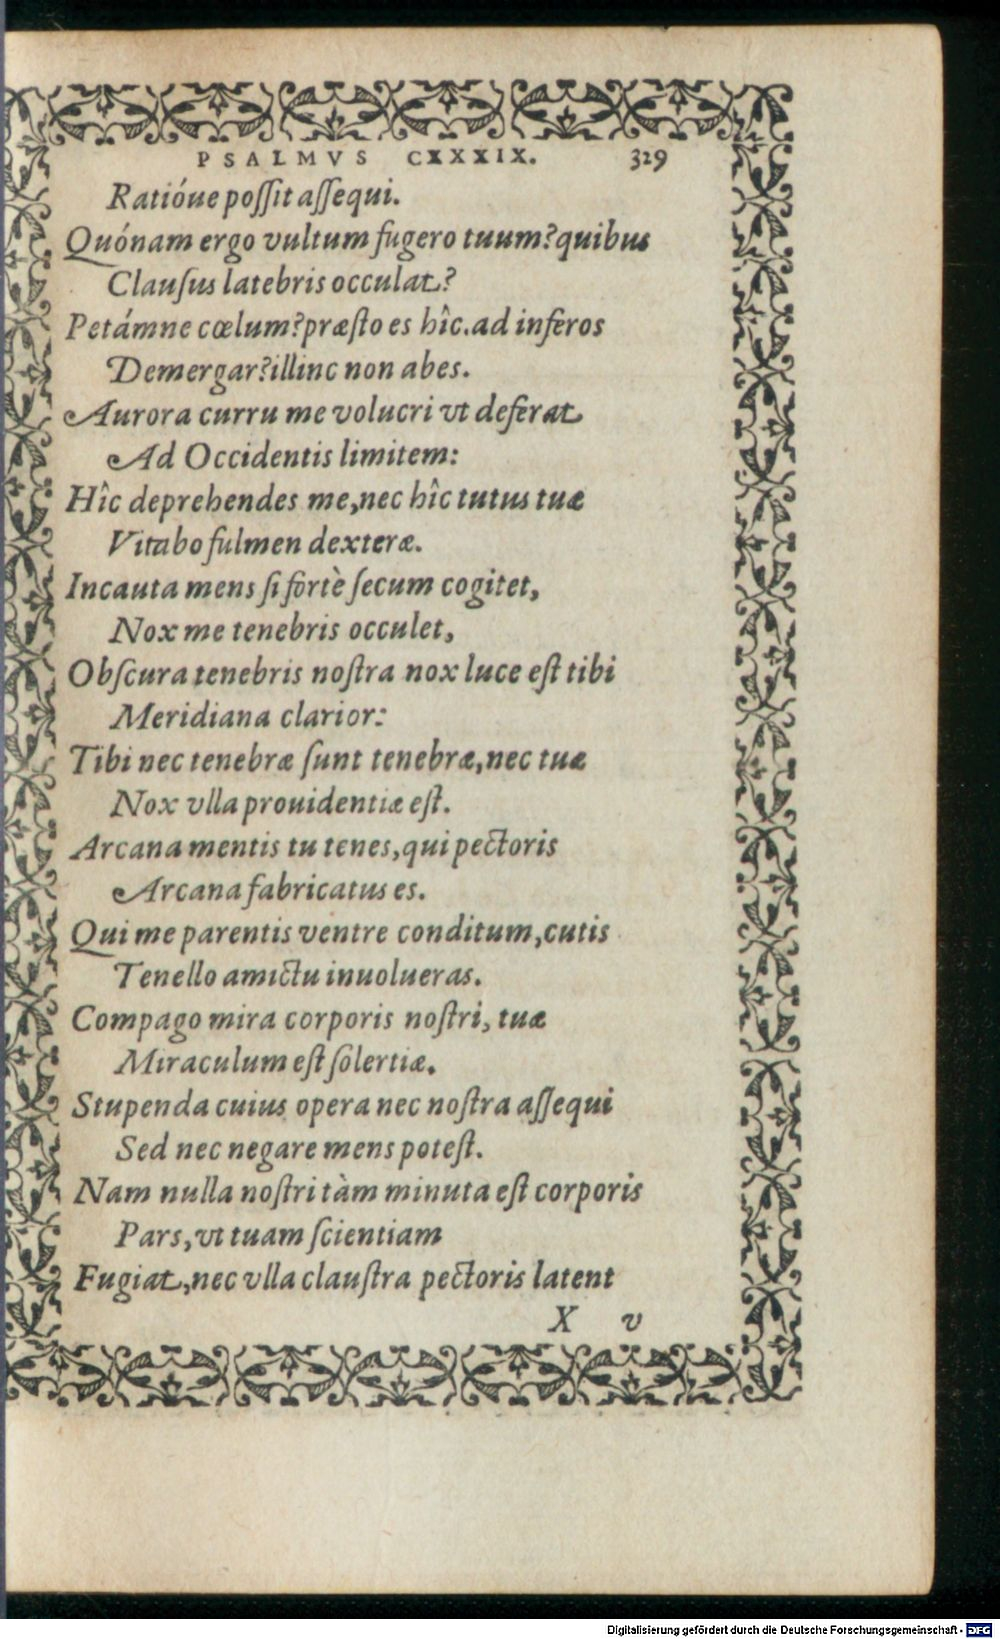 PSALMVS CXXXIX. 329
Ratióue poſſit aſſequi.
Quónam ergo vultum fugero tuum?quibus
Clauſus latebris occulat?
Petámne cœlum?præſto es hîc.ad inferos
Demergar?illinc non abes.
Aurora curru me volucri vt deferat
Ad Occidentis limitem:
Hîc deprehendes me,nec hîc tutus tuæ
Vitabo fulmen dexteræ.
Incauta mens ſi fortè ſecum cogitet,
Nox me tenebris occulet,
Obſcura tenebris noſtra nox luce eſt tibi
Meridiana clarior:
Tibi nec tenebræ ſunt tenebræ,nec tuæ
Nox vlla prouidentiæ eſt.
Arcana mentis tu tenes,qui pectoris
Arcana fabricatus es.
Qui me parentis ventre conditum,cutis
Tenello amictu inuolueras.
Compago mira corporis noſtri, tuæ
Miraculum eſt ſolertiæ.
Stupenda cuius opera nec noſtra aſſequi
Sed nec negare mens poteſt.
Nam nulla noſtri tàm minuta eſt corporis
Pars,vt tuam ſcientiam
Fugiat,nec vlla clauſtra pectoris latent
X v
Digitalisierung gefördert durch die Deutsche Forschungsgemeinschaft - DFG